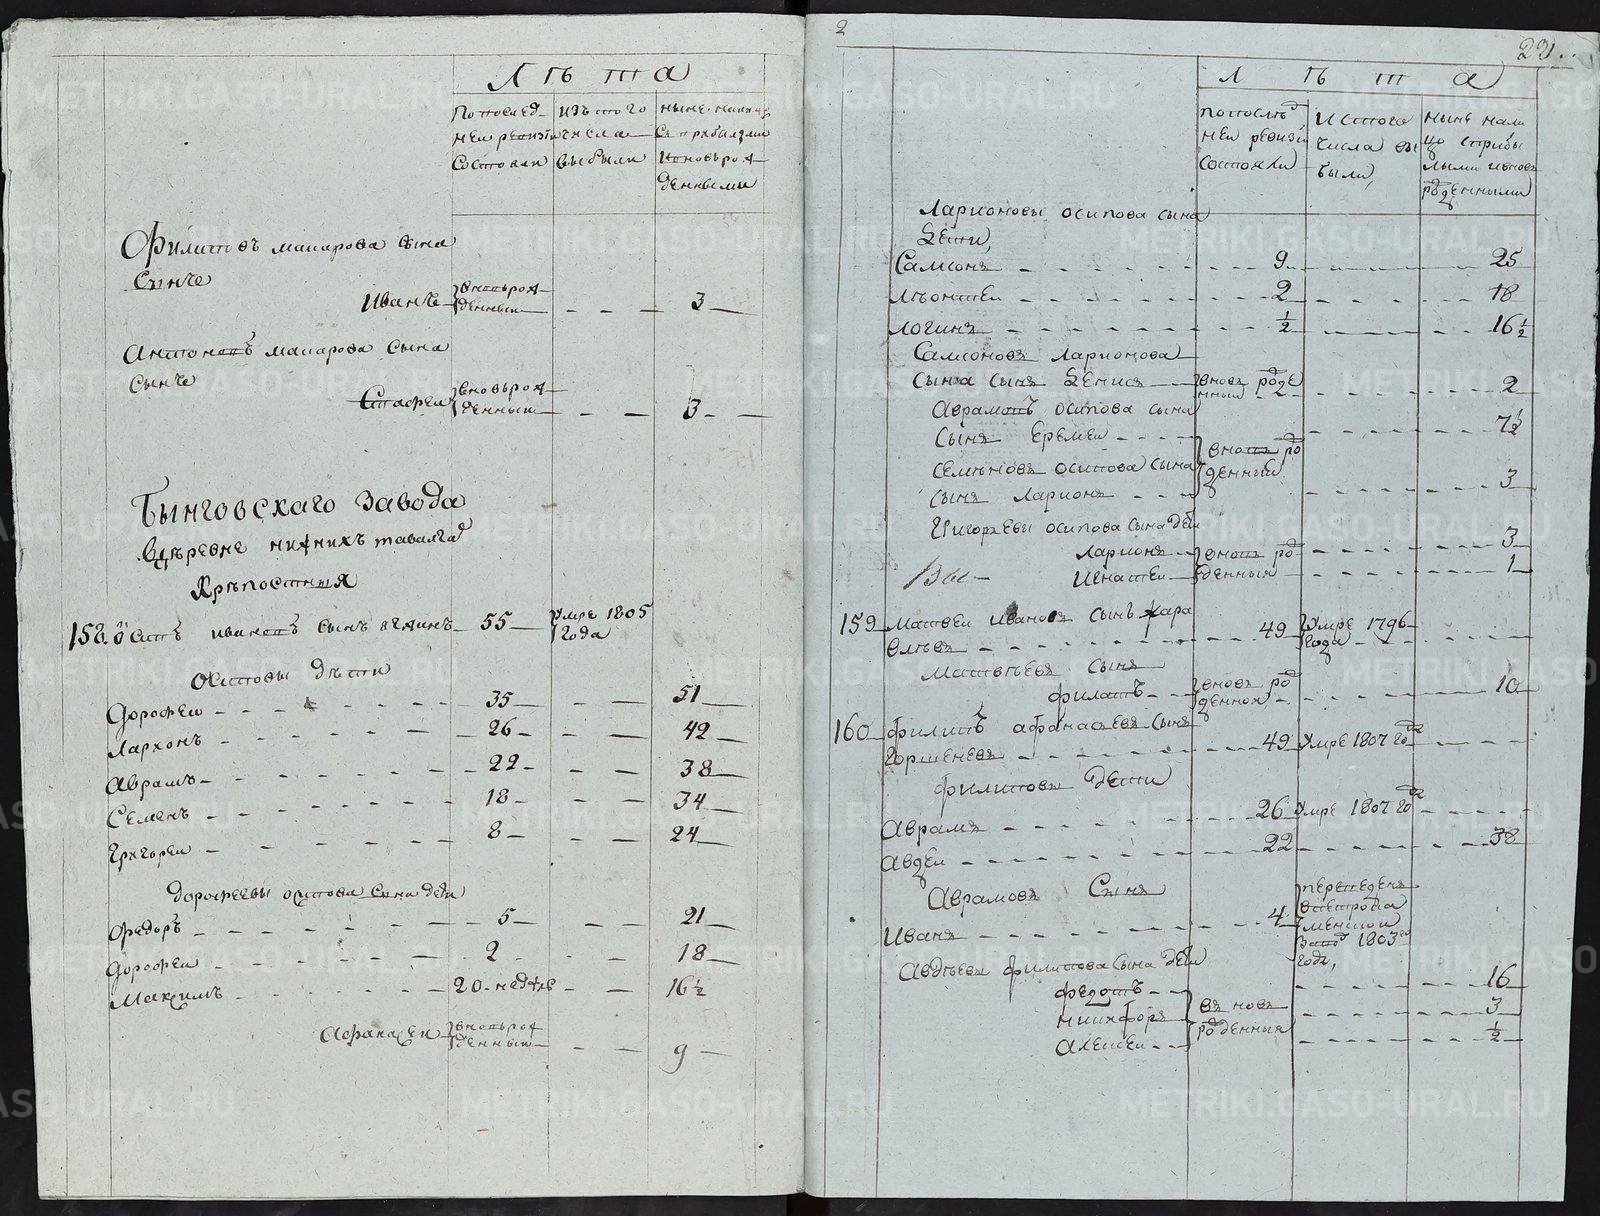 Лѣта
Попослед
ней ревизіи
состояли
изътого
числа
выбыли
ныне налицо
съ прибылыми
иновьрож
денными
Филиповъ макарова сына
сынъ
Иванъ
вновьрож
денный
3
Антоновъ макарова сына
сынъ
вновьрож
денный
3
Бынговскаго завода
Вдѣревне нижнихъ таволга
Крѣпостныя
158. Осипъ ивановъ сынъ 55 Умре 1805
года
Осиповы дѣти
Дорофеи 35 51
Ларионъ 26 42
Аврамъ 22 38
Семенъ 18 34
Григореи 8 24
Дорофеевы осипова сына дети
Федоръ 5 21
Дорофеи 2 18
Максимъ 20 недѣль 16 1/2
Афанасеи
вновьрож
денный
9
2
231
Лѣта
попослѣд
ней ревизіи
состояли
истого
числа вы
были,
ныне нали
цо сприбы
лыми иновь
рожденными
Ларионовы осипова сына
Дети,
Самсонъ 9 25
леонтеи 2 18
логинъ 1/2 16 1/2
Самсоновъ Ларионова
сына сынъ Денисъ вновь рожде
нный 2
Аврамовъ осипова сына
сынъ Еремеи 7 1/2
вновь ро
жденный
Семеновъ осипова сына
сынъ Ларионъ 3
Григорьевы осипова сына дети
Ларионъ вновь ро 3
Игнатеи жденныя 1
159 Матвеи Ивановъ сынъ Кара
влевъ 49 Умре 1796
года
Матвѣевъ сынъ
филатъ вновь ро 10
жденной
160 Филипъ афанасьевъ сынъ
Горшеневъ 49 Умре 1807 году
филиповы дети
Аврамъ 26 Умре 1807 году
Авдеи 22 38
Аврамовъ Сынъ
Иванъ 4
переведенъ
вьпетрока
менскои
заводъ 1803го
года,
Авдѣевы филипова сына дети
федотъ 16
никифоръ вь новь 3
рожденныя
Алексеи 1/2
METRIKI.GASO-URAL.RU